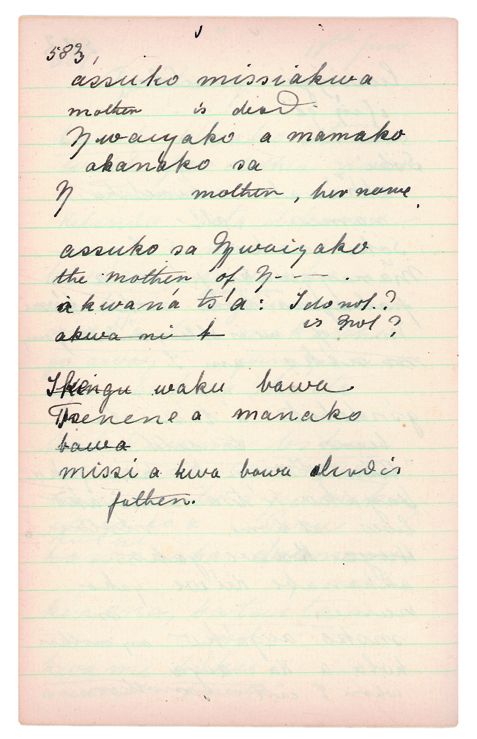 583,
assuko missiakwa
mother is dead.
Nwaiyako a mamako
akanako sa
N mother, her name.
assuko sa Nwaiyako
the mother of N---- .
akwaná ts'a: I do not.?
akwa mi t is not?
waku bawa
Tsenene a manako
bawa
missi a kwa bawa dead is
father.